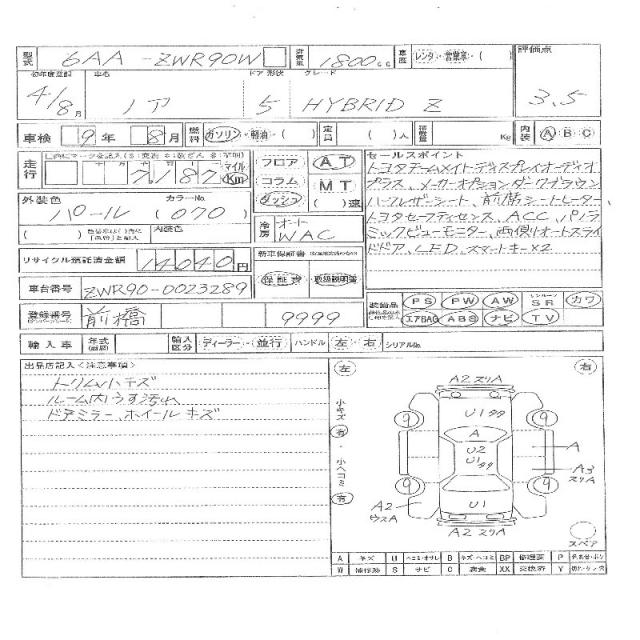 型式 6AA-ZWR90W 排気量 1800cc 車歴 レンタ・営業車・( ) 評価点
初年度登録 車名 ドア 形状 グレード
4/8月 ノア 5 HYBRID Z 3.5
車検 9年 8月 燃料 ガソリン・軽油・( ) 定員 ( )人 積載量 Kg 内装 A B C
走行 7187 マイル Km フロア コラム ダッシュ AT MT ( )速
セールスポイント
トヨタチームメイト・ディスプレイオーディオ
プラス、メーカーオプションダークブラウン
ハーフレザーシート、前席シートヒーター、
トヨタセーフティセンス、ACC、パノラ
ミックビューモニター、両側オートスライ
ドドア、LED、スマートキー×2
外装色 カラーNo.
パール (070)
内装色
冷房 オート WAC
リサイクル預託済金額 14040円 新車保証書
保証書 取扱説明書
車台番号 ZWR90-0023289
登録番号 前橋 9999
装備品 PS PW AW SR カワ
エアBAG ABS ナビ TV
輸入車 年式 輸入区分 ディーラー・並行 ハンドル 左・右 シリアルNo.
出品店記入<注意事項>
トリムハゲキズ
ルーム内うす汚れ
ドアミラー、ホイールキズ
左 右
小キズ 有
小ヘコミ 有
A2 スリA
U1 99
9 9
A
U2
U1 99
A
A3 スリA
9 9
A2 ウスA
U1
A2 スリA
スペア
A キズ U ヘコミ B キズ ヘコミ BP 修理要 P
W 補修跡 S サビ C 腐食 XX 交換済 Y